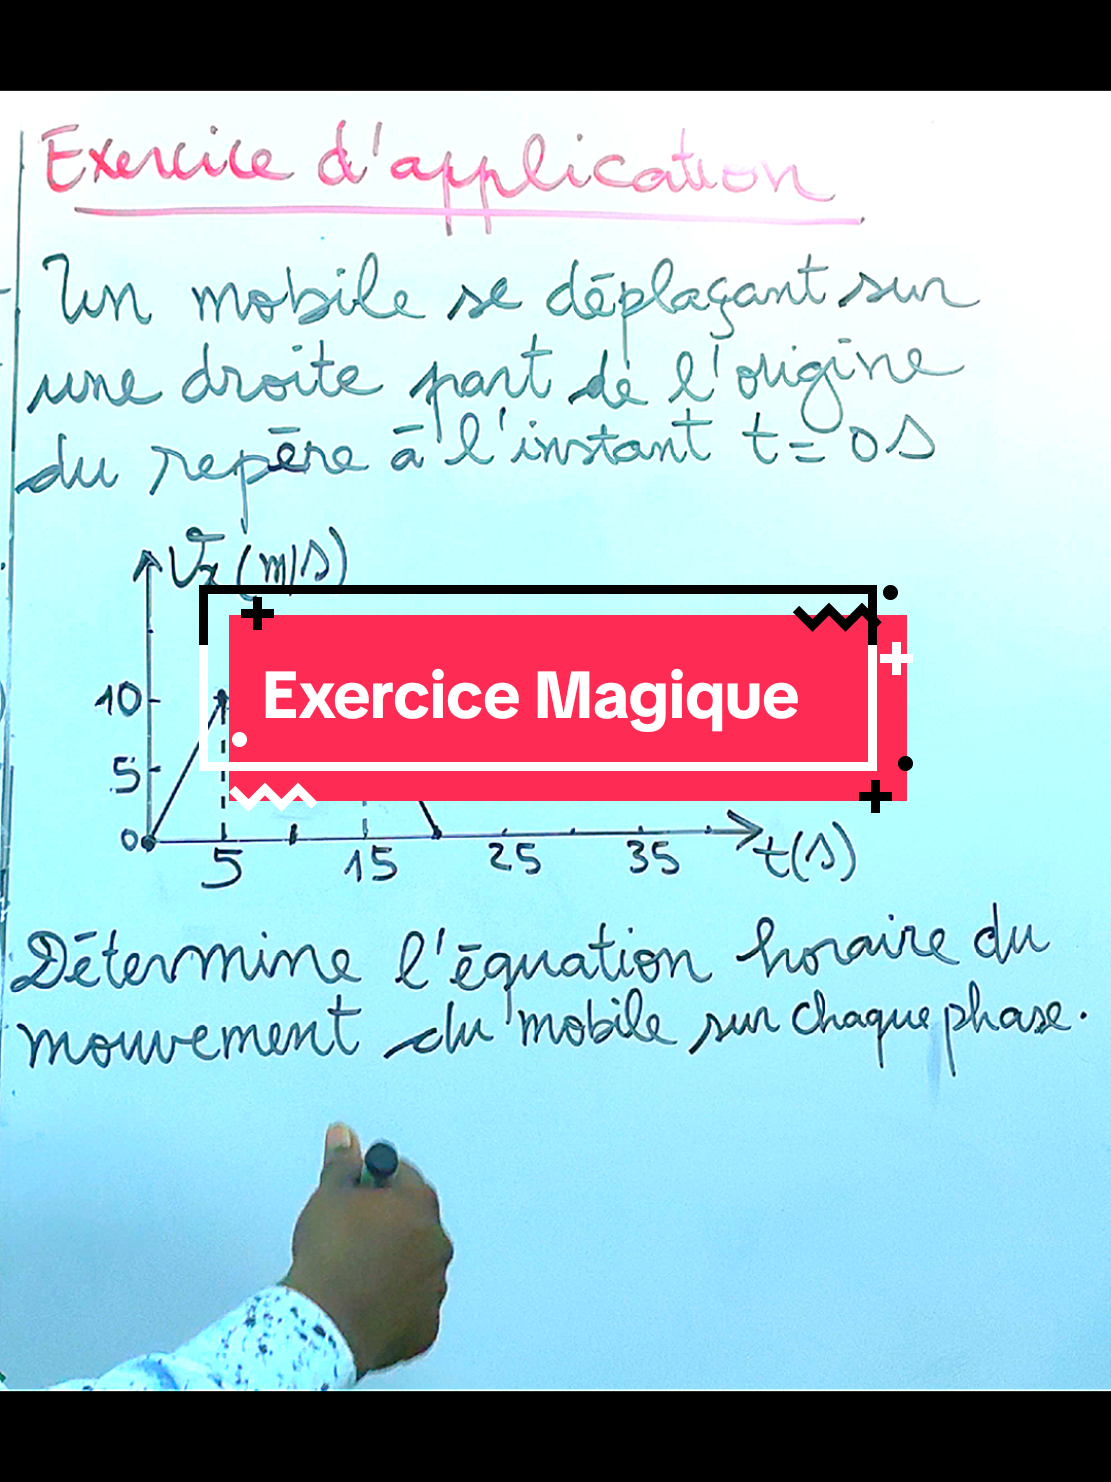 Exercice d'application
Un mobile se déplaçant sur
une droite part de l'origine
du repère à l'instant t = 0 s
Vx (m/s)
Exercice Magique
10
5
0
5 15 25 35 t(s)
Détermine l'équation horaire du
mouvement du mobile sur chaque phase.